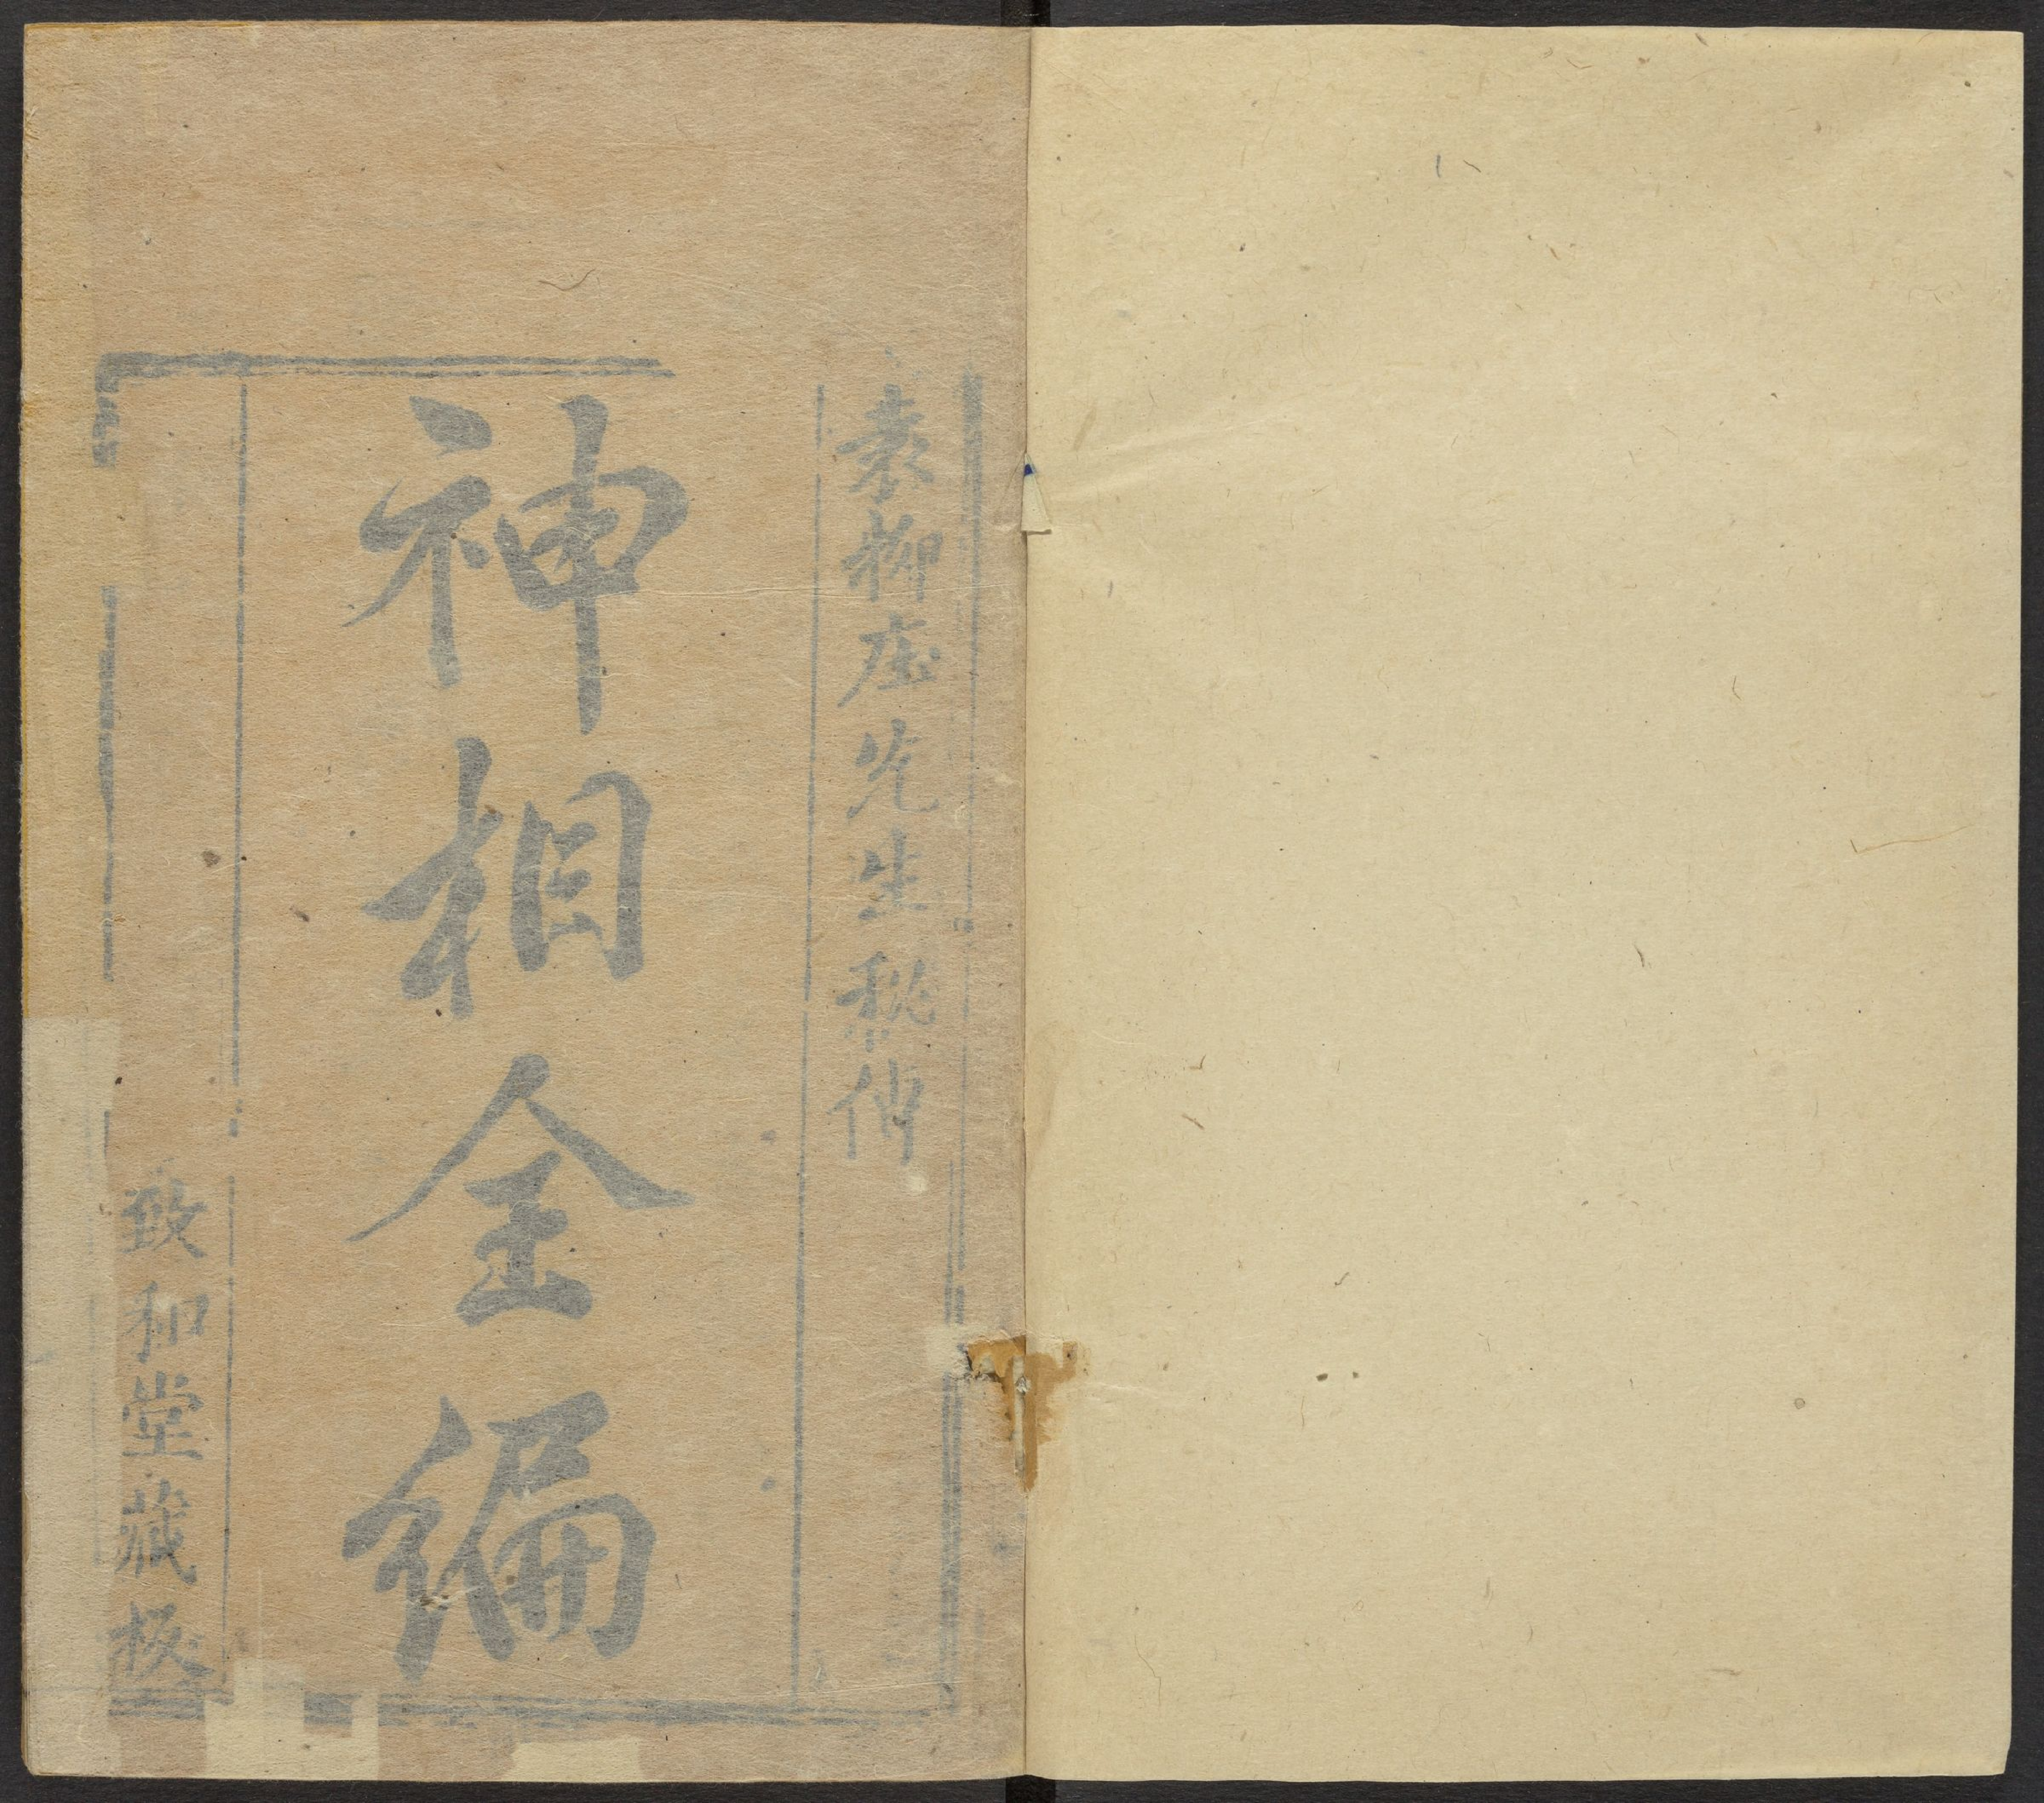 袁柳庄先生秘传
神相全编
致和堂藏板